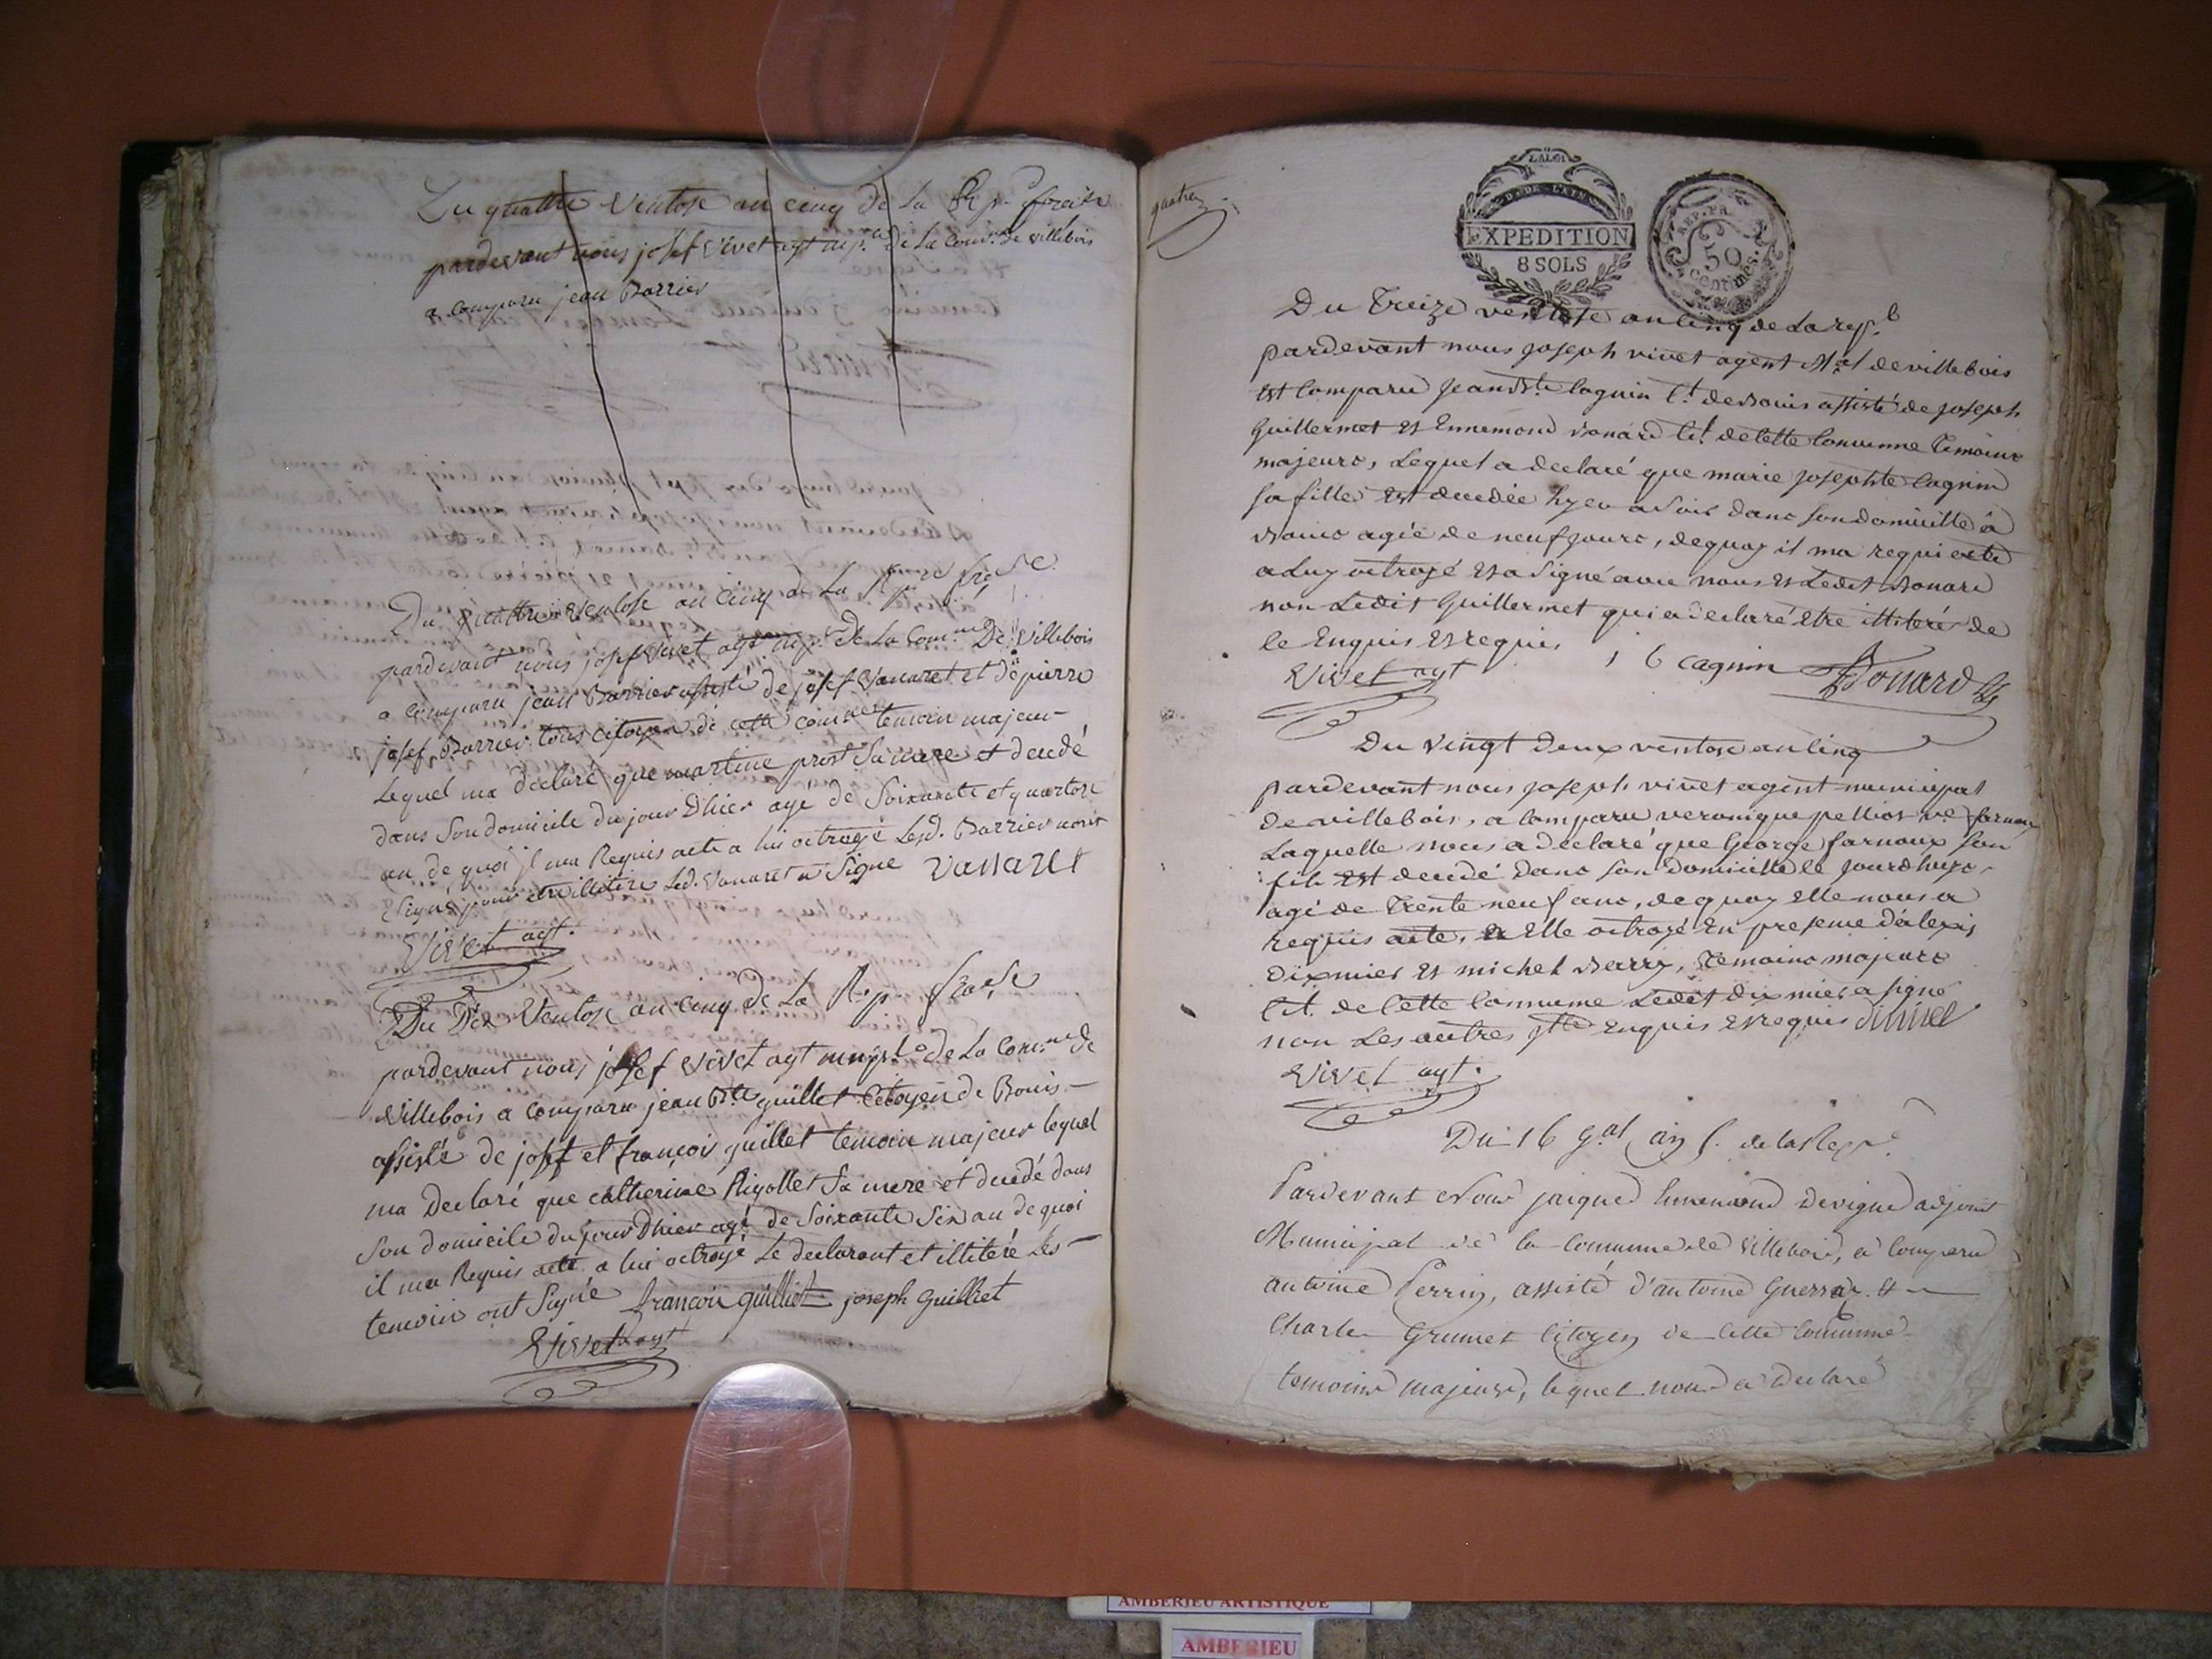 Du quattre Ventose an cinq de La Rep.
pardevant nous josef vivet agt mp.al de La Com.ne de villebois
a comparu jean Barrier
Du quattre Ventose an cinq de La Rep.
pardevant nous josef vivet agt mp.l De La Com.ne De villebois
a comparu jean Barrier assisté de josef Vanaret et de pierre
josef Barrier tous citoyen de cette comne temoin majeur
Lequel ma declaré que martine prost Sa mere et decedé
dans Son domicile du jour Dhier agé de Soixante et quatorze
an de quoi jl ma Requis acte a lui octroyé Lesd. Barrier nont
Signé pour etre illitere Led. Vanaret a Signe Vanaret
Vivet agt.
Du Dix Ventose an Cinq de La Rep franse
pardevant nous josef vivet agt mup.l de La Com.ne de
villebois a comparu jean Bte guillet Citoyen de Bouis
assisté de josef et françois guillet temoin majeur lequel
ma Declaré que catherine Rigollet Sa mere et decedé dans
Son domicile du jour Dhier agé de Soixante Six an de quoi
il ma Requis acte a lui octroyé Le declarant et illiteré Les
temoin ont Signé françois guilliet joseph Guilliet
Vivet agt
quatre
LA LOI
EXPEDITION
8 SOLS
REP. FR.
50
Centimes
Du Treize ventose an cinq de La rep.b
pardevant nous joseph vivet agent M.al de villebois
Est Comparu jean Bte Cagnin Ct. de Bouis assisté de joseph
Guillermet et Ennemond Bonard Cit. de Cette Commune Temoins
majeurs, Lequel a declaré que marie josephte Cagnin
sa fille est decedée hyer a Soir dans son domicille à
Bouis agée de neuf jours, de quoy il ma requi acte
a Luy octroyé et a Signé avec nous et Ledit Bonard
non Ledit Guillermet qui a declaré Etre illiteré de
le Enquis et requis
Vivet agt j b cagnin Bonard
Du vingt Deux ventose an Cinq
pardevant nous joseph vivet agent municipal
de villebois, a Comparu veronique pellion ve farnoux
Laquelle nous a declaré que George farnoux son
fils est decedé Dans son Domicille le jourdhuy
agé de Trente neuf ans, de quoy Elle nous a
requis acte, a Elle octroyé En presence d'alexis
Dixmier et michel Berry, Temoins majeurs
Cit. de Cette Commune Ledit Dixmier a signé
non Les autres Enquis et requis
Vivet agt.
Du 16 g.al an 5. de la Rep.
Pardevant Nous jacques Ennemond Devigne adjoint
Municipal de la Commune de Villebois, a Comparu
antoine Perrin, assisté d'antoine Guerraz et
Charle Grumet Citoyen de Cette Commune
temoins majeurs, lequel nous a Declaré
AMBERIEU ARTISTIQUE
AMBERIEU